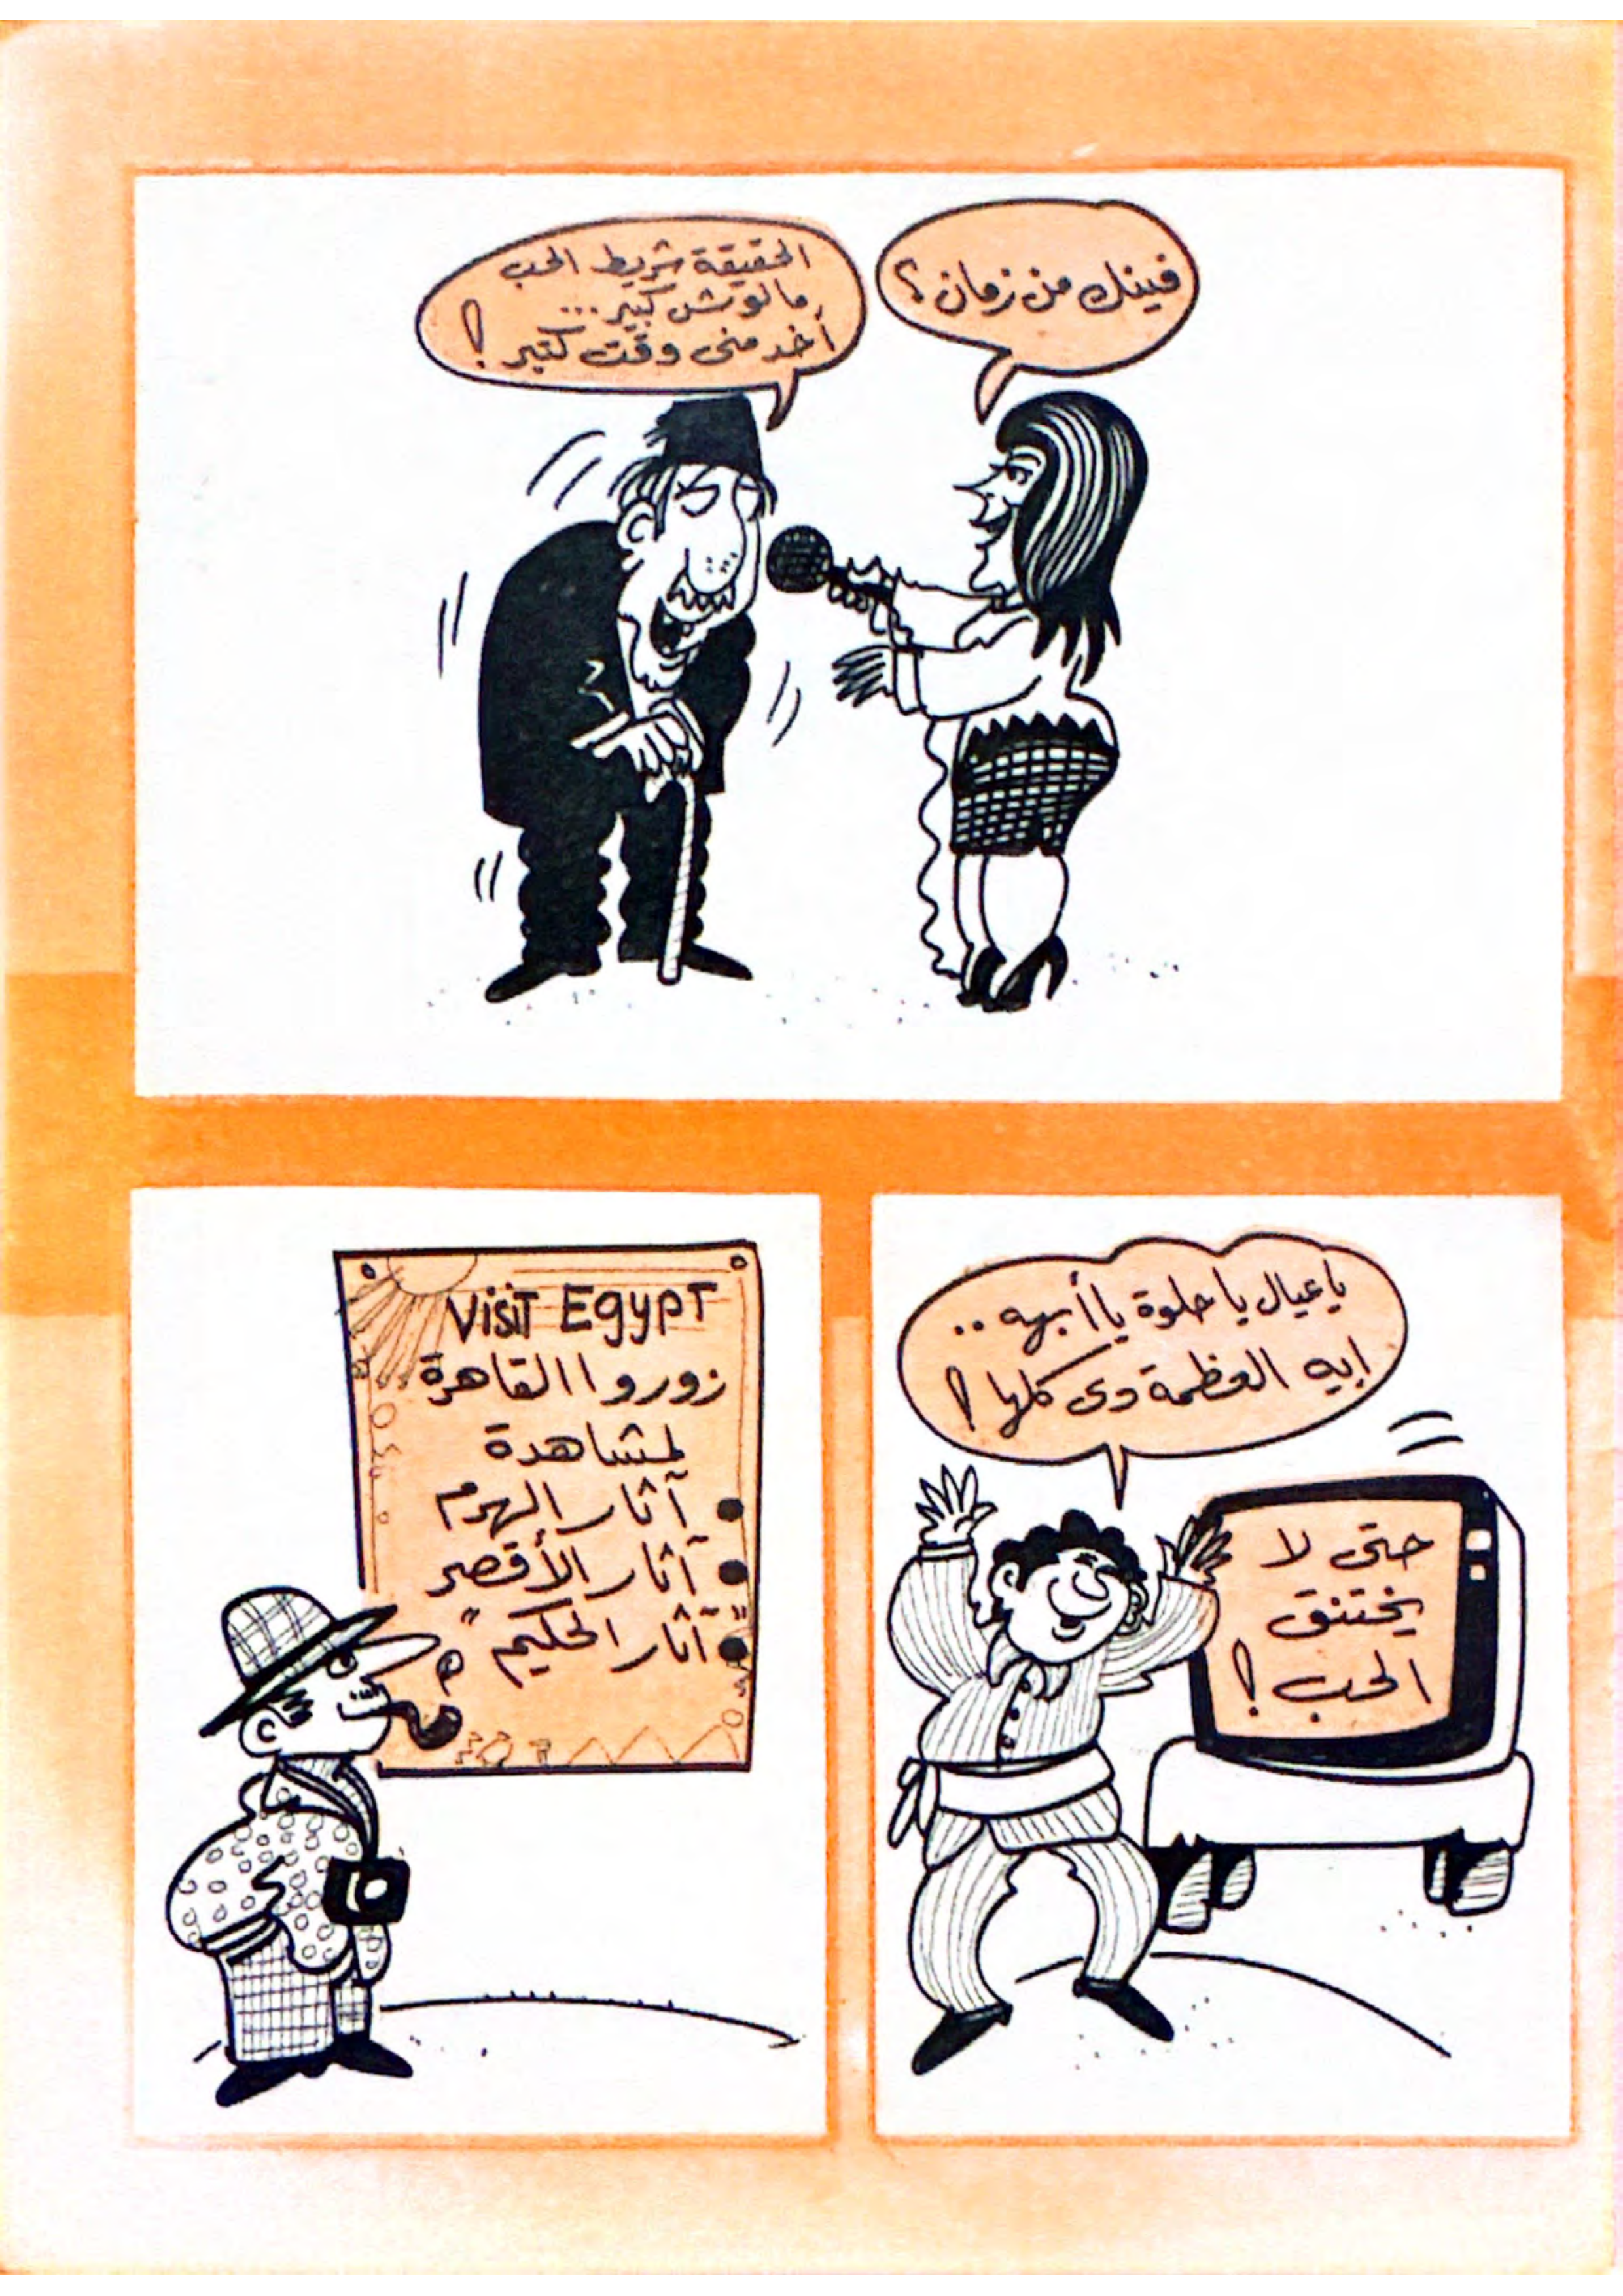 فينك من زمان ؟
الحقيقة شريط الحب
مالوش كبير ...
أخد منى وقت كتير !
ياعيال يا حلوة يا أبهه ..
ايه العظمة دى كلها !
حتى لا
يختنق
الحب !
Visit Egypt
زوروا القاهرة
لمشاهدة
● آثار الهرم
● آثار الأقصر
● "آثار الحكيم"